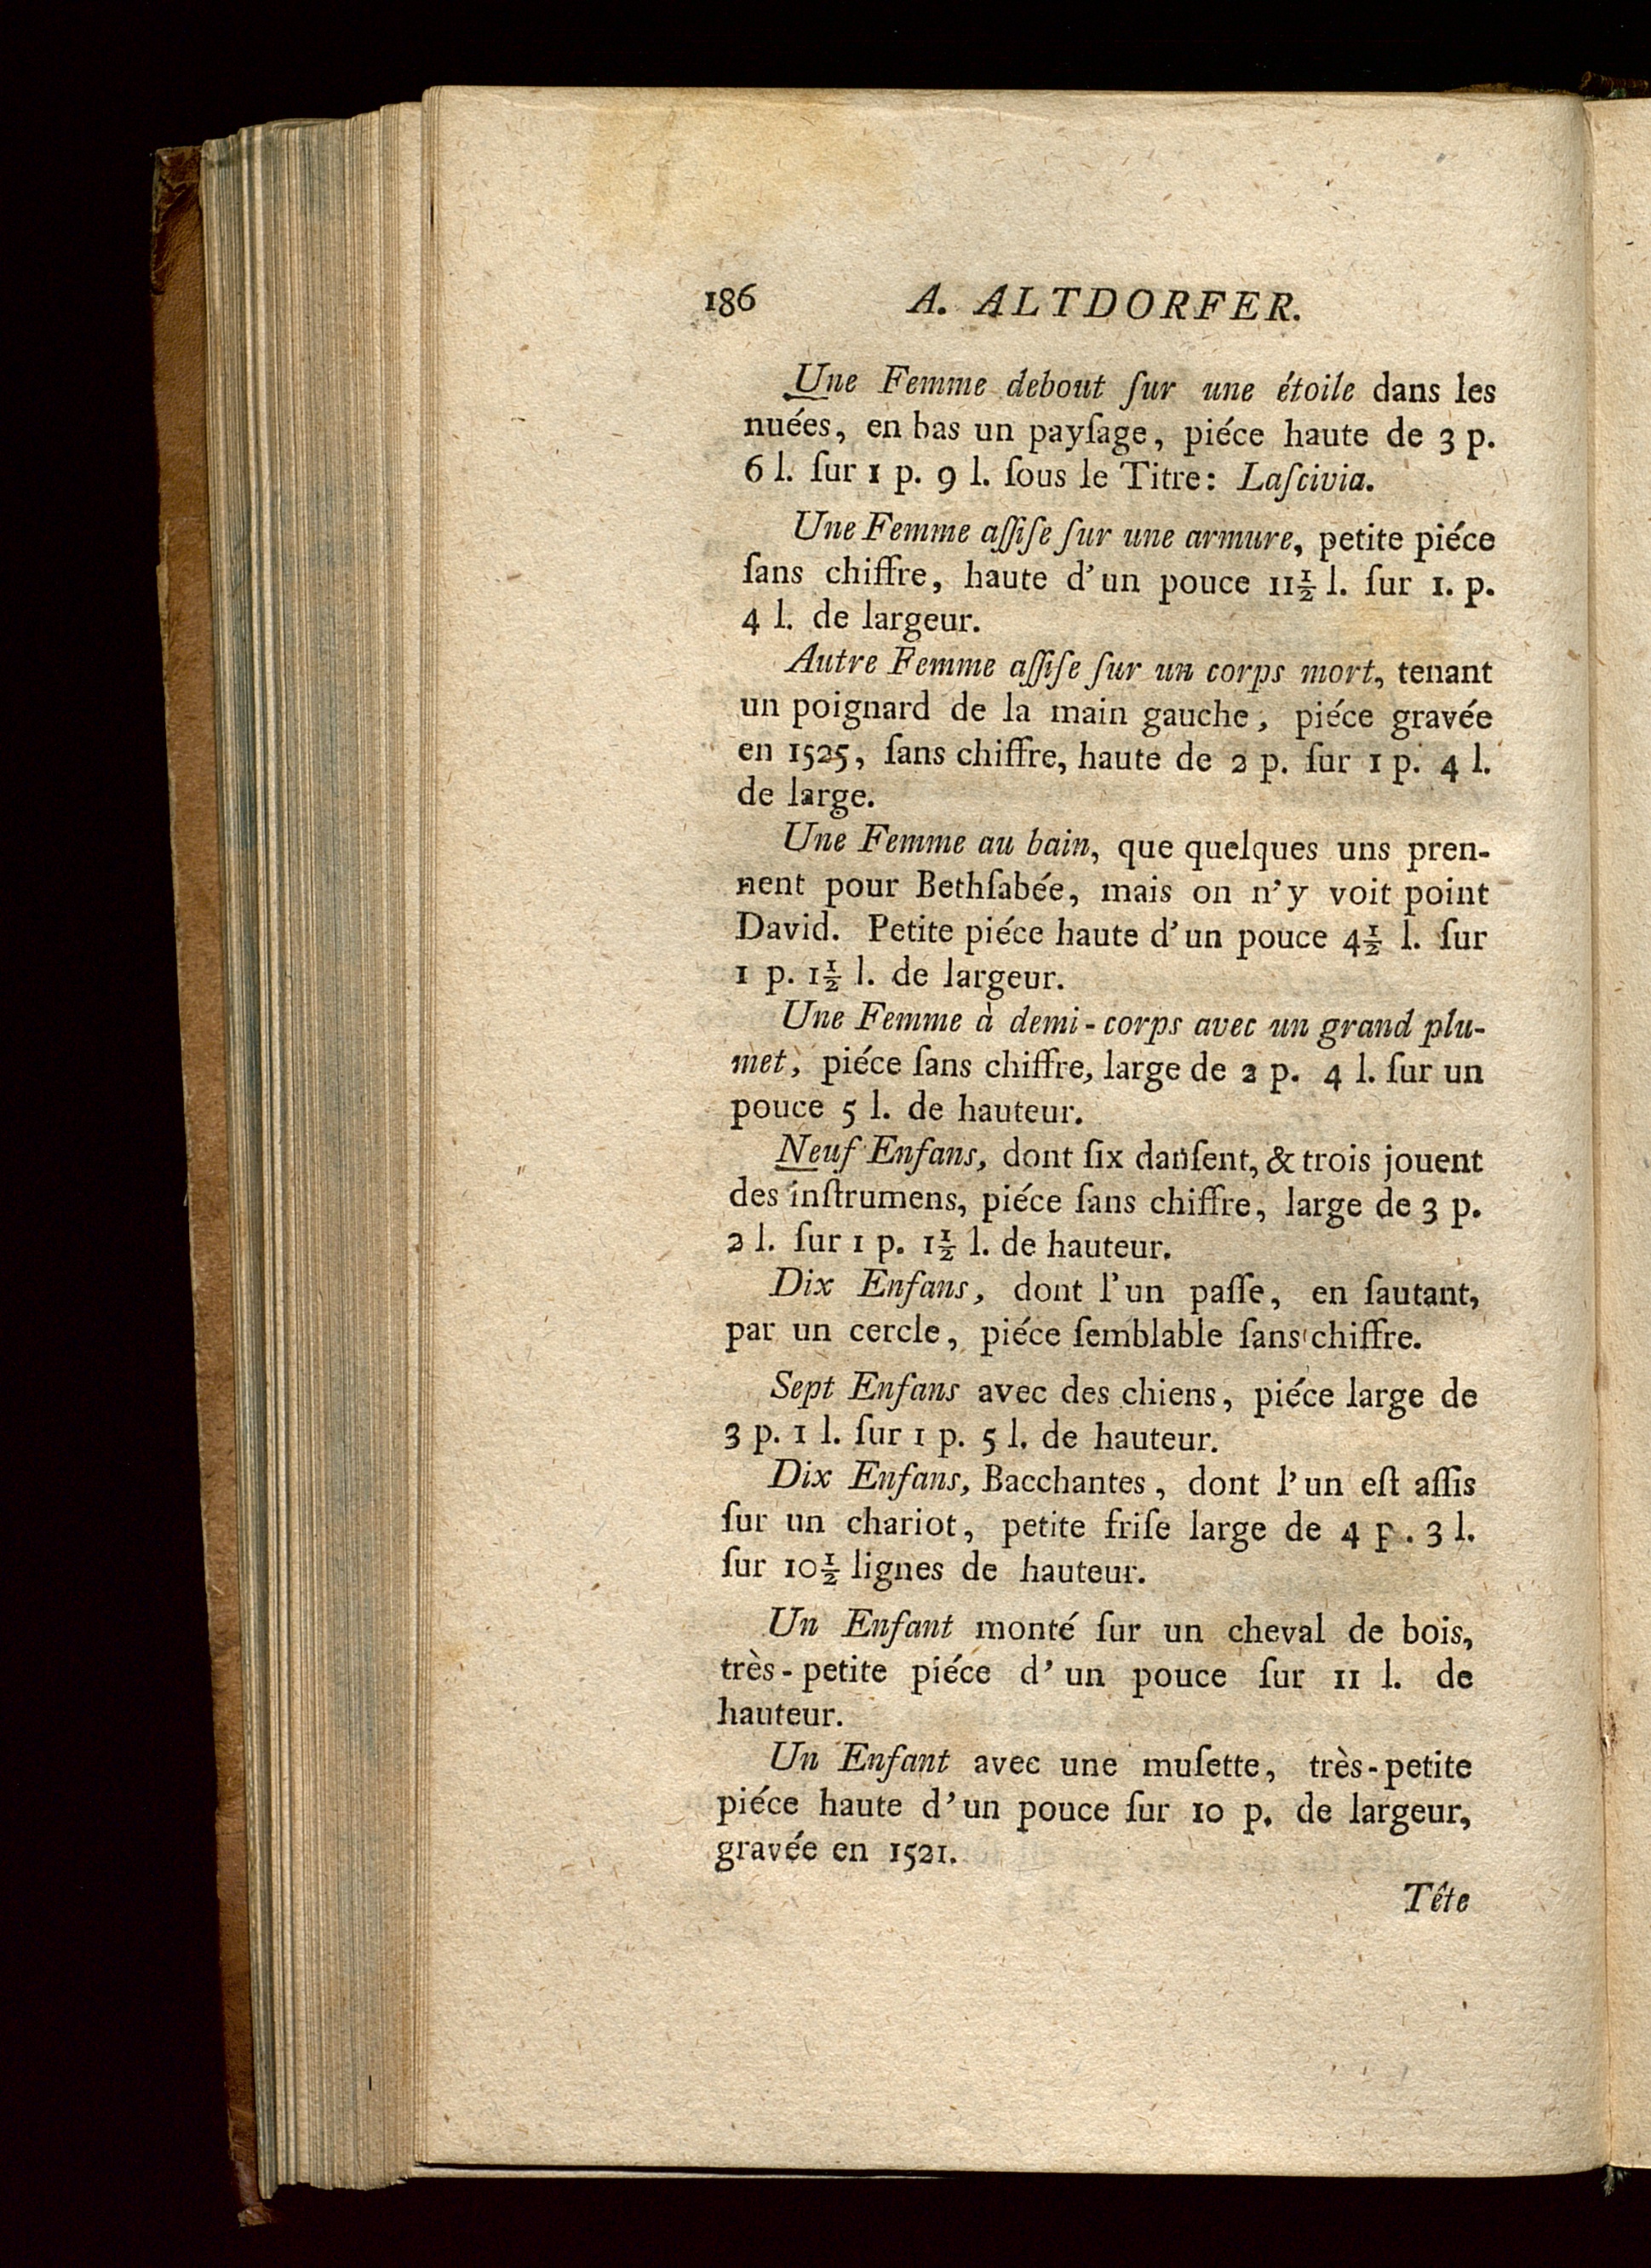 186 A. ALTDORFER.
Une Femme debout ſur une étoile dans les
nuées, en bas un payſage, piéce haute de 3 p.
6 l. ſur 1 p. 9 l. ſous le Titre: Laſcivia.
Une Femme aſſiſe ſur une armure, petite piéce
ſans chiffre, haute d'un pouce 11½ l. ſur 1. p.
4 l. de largeur.
Autre Femme aſſiſe ſur un corps mort, tenant
un poignard de la main gauche, piéce gravée
en 1525, ſans chiffre, haute de 2 p. ſur 1 p. 4 l.
de large.
Une Femme au bain, que quelques uns pren-
nent pour Bethſabée, mais on n'y voit point
David. Petite piéce haute d'un pouce 4½ l. ſur
1 p. 1½ l. de largeur.
Une Femme à demi-corps avec un grand plu-
met, piéce ſans chiffre, large de 2 p. 4 l. ſur un
pouce 5 l. de hauteur.
Neuf Enfans, dont ſix danſent, & trois jouent
des inſtrumens, piéce ſans chiffre, large de 3 p.
2 l. ſur 1 p. 1½ l. de hauteur.
Dix Enfans, dont l'un paſſe, en ſautant,
par un cercle, piéce ſemblable ſans chiffre.
Sept Enfans avec des chiens, piéce large de
3 p. 1 l. ſur 1 p. 5 l. de hauteur.
Dix Enfans, Bacchantes, dont l'un eſt aſſis
ſur un chariot, petite friſe large de 4 p. 3 l.
ſur 10½ lignes de hauteur.
Un Enfant monté ſur un cheval de bois,
très-petite piéce d'un pouce ſur 11 l. de
hauteur.
Un Enfant avec une muſette, très-petite
piéce haute d'un pouce ſur 10 p. de largeur,
gravée en 1521.
Tête